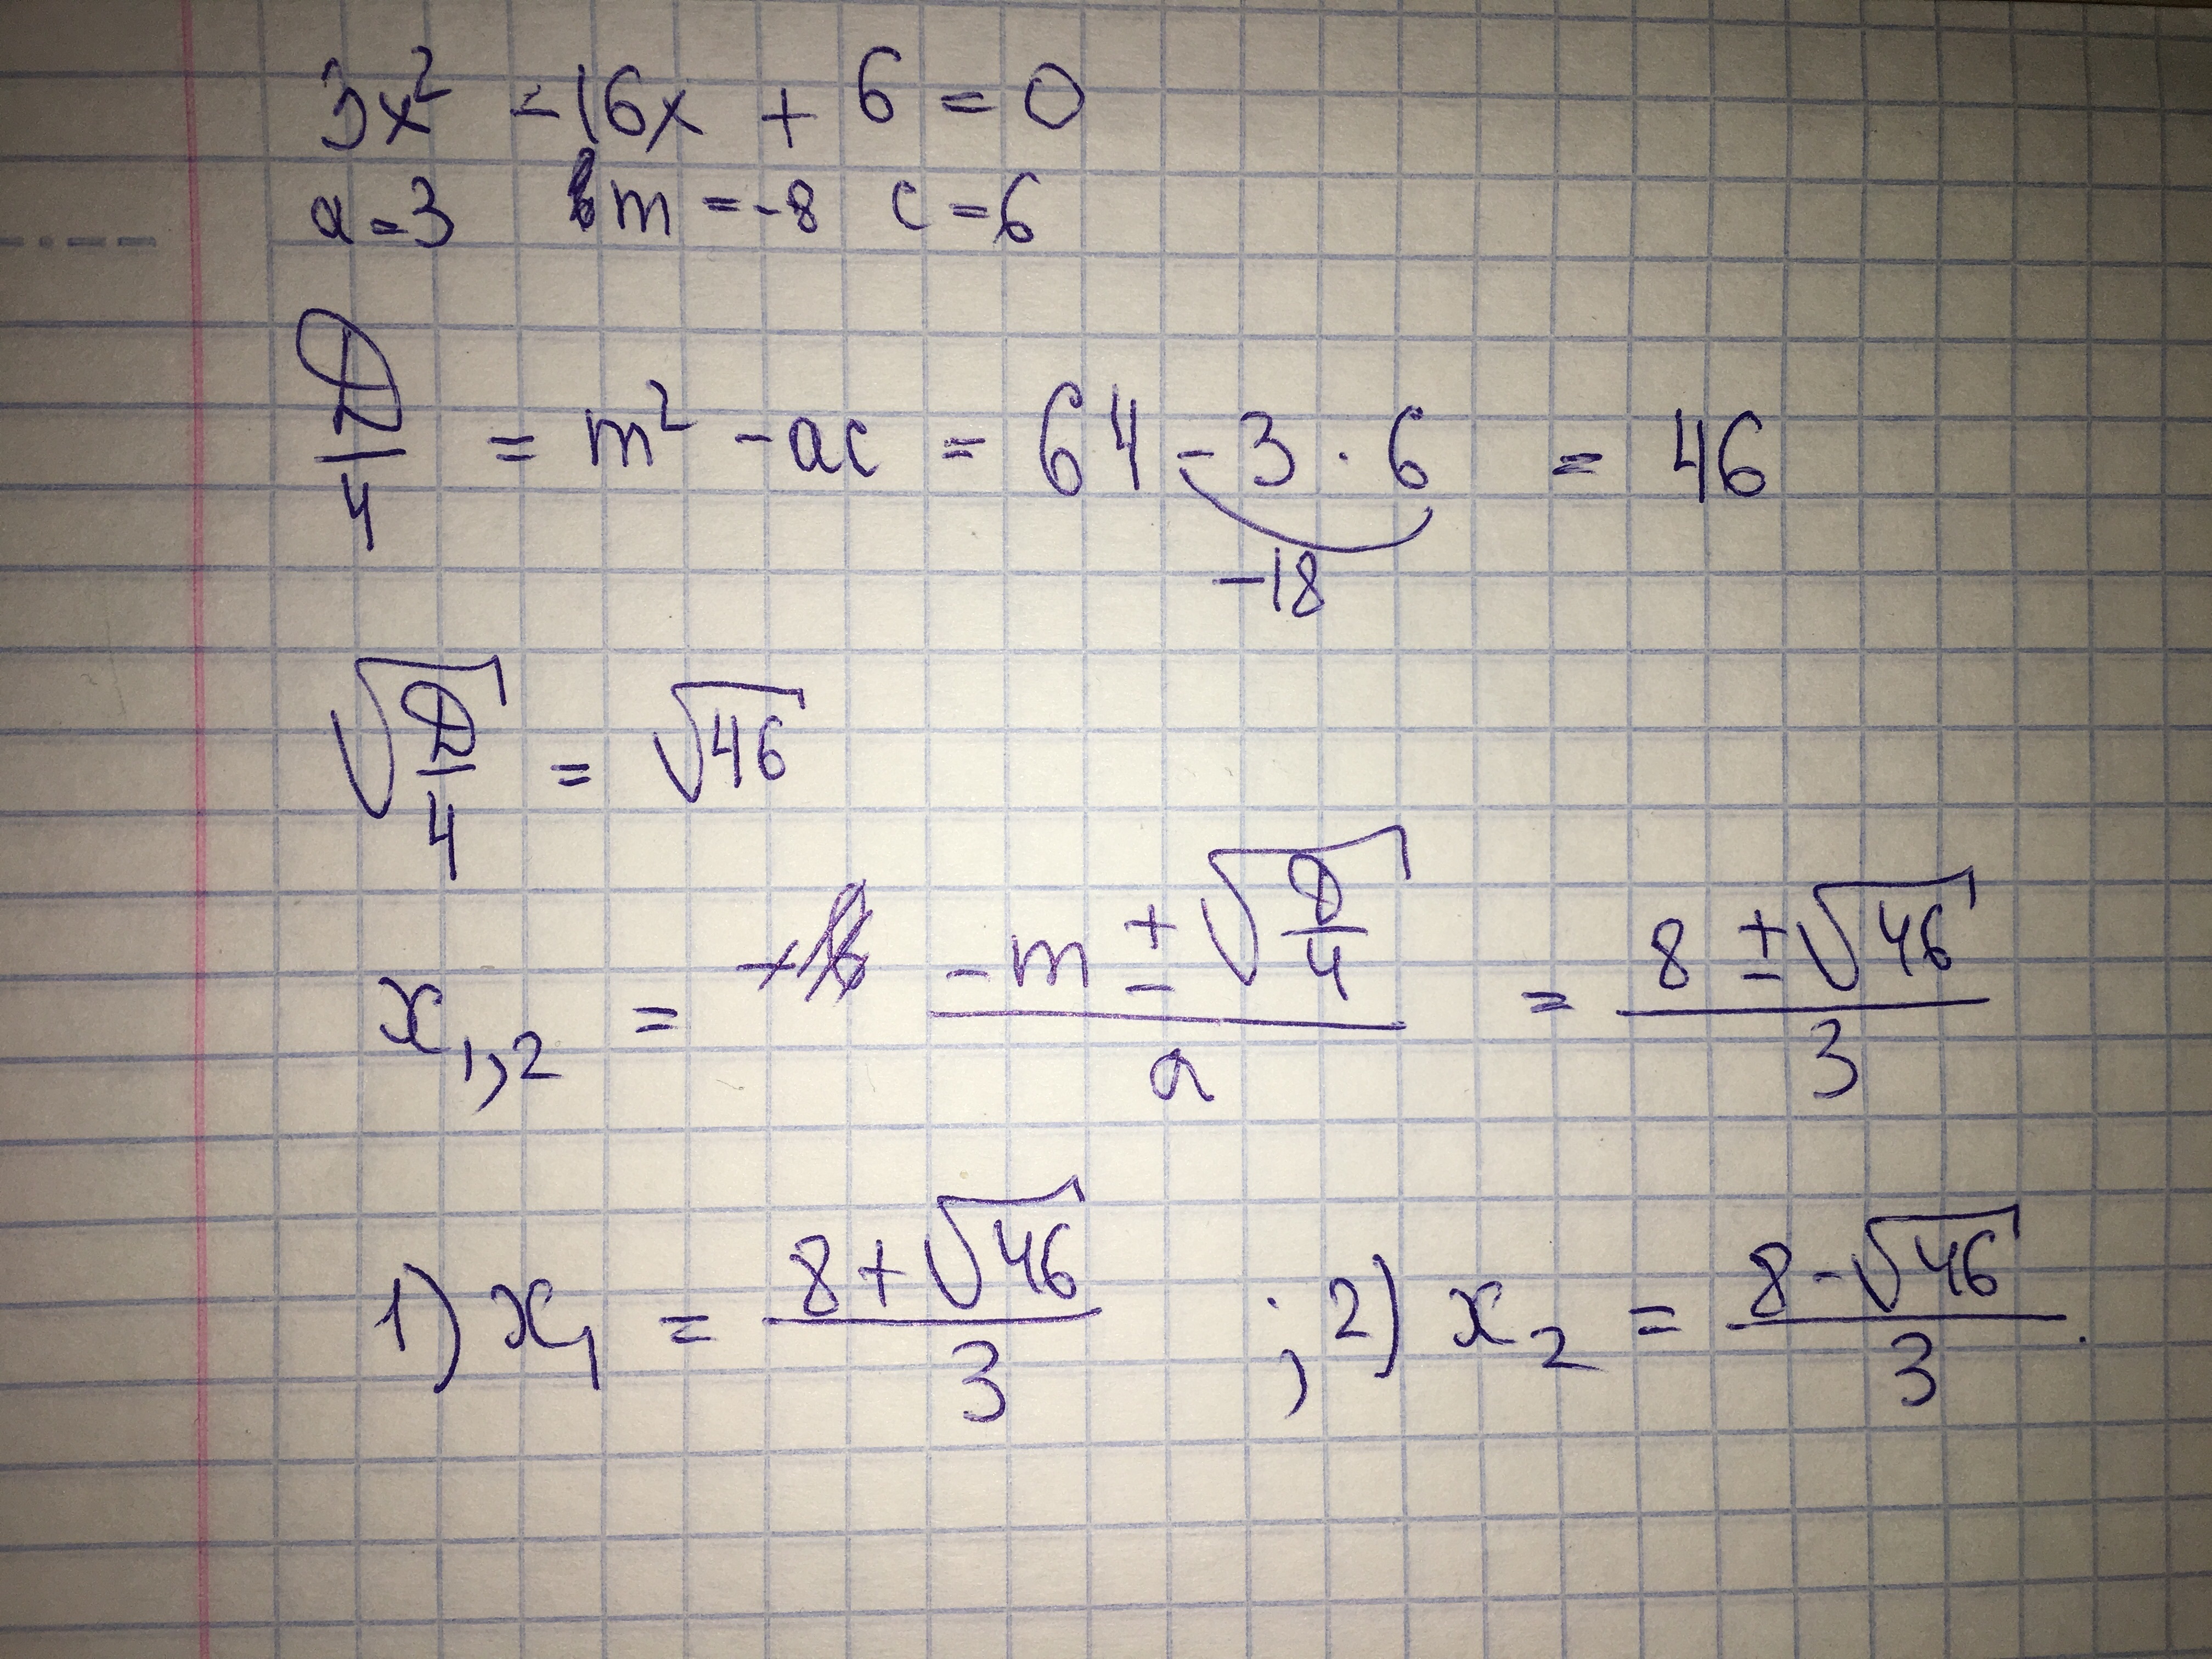 3x² - 16x + 6 = 0
a = 3 m = -8 c = 6
D/4 = m² - ac = 64 - 3 · 6 = 46
-18
√(D/4) = √46
x₁,₂ = (-m ± √(D/4))/a = (8 ± √46)/3
1) x₁ = (8 + √46)/3 ; 2) x₂ = (8 - √46)/3 .